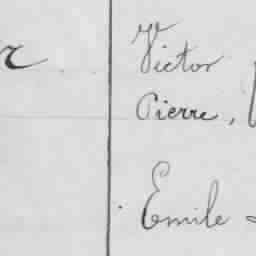 Victor
Pierre,
Emile